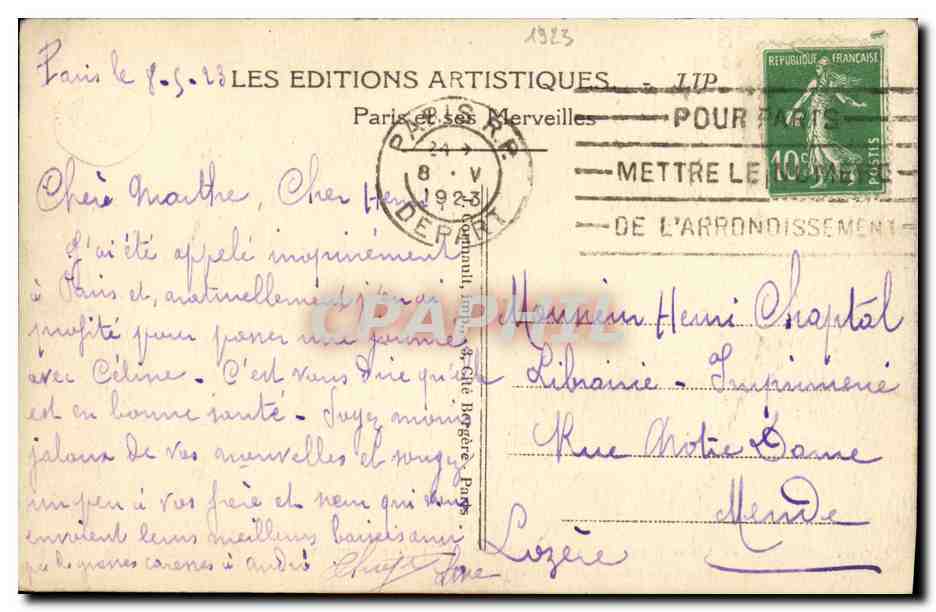 1923
Paris le 8-5-23
LES EDITIONS ARTISTIQUES - LIP
Paris et ses Merveilles
PARIS R.P.
8 · V
1923
DEPART
POUR PARIS
METTRE LE NUMERO
DE L'ARRONDISSEMENT
REPUBLIQUE FRANÇAISE
10c
POSTES
Chère Marthe, Cher Henri,
J'ai été appelé inopinément
à Paris et, naturellement j'en ai
profité pour passer une journée
avec Céline. C'est vous dire qu'elle
est en bonne santé - Soyez moins
jaloux de vos nouvelles et songez
un peu à vos frère et sœur qui vous
envoient leurs meilleurs baisers ainsi
que de grosses caresses à André
Cornault, imp., 3, Cité Bergère, Paris
CPAPHIL
Monsieur Henri Chaptal
Librairie - Imprimerie
Rue Notre Dame
Mende
Lozère